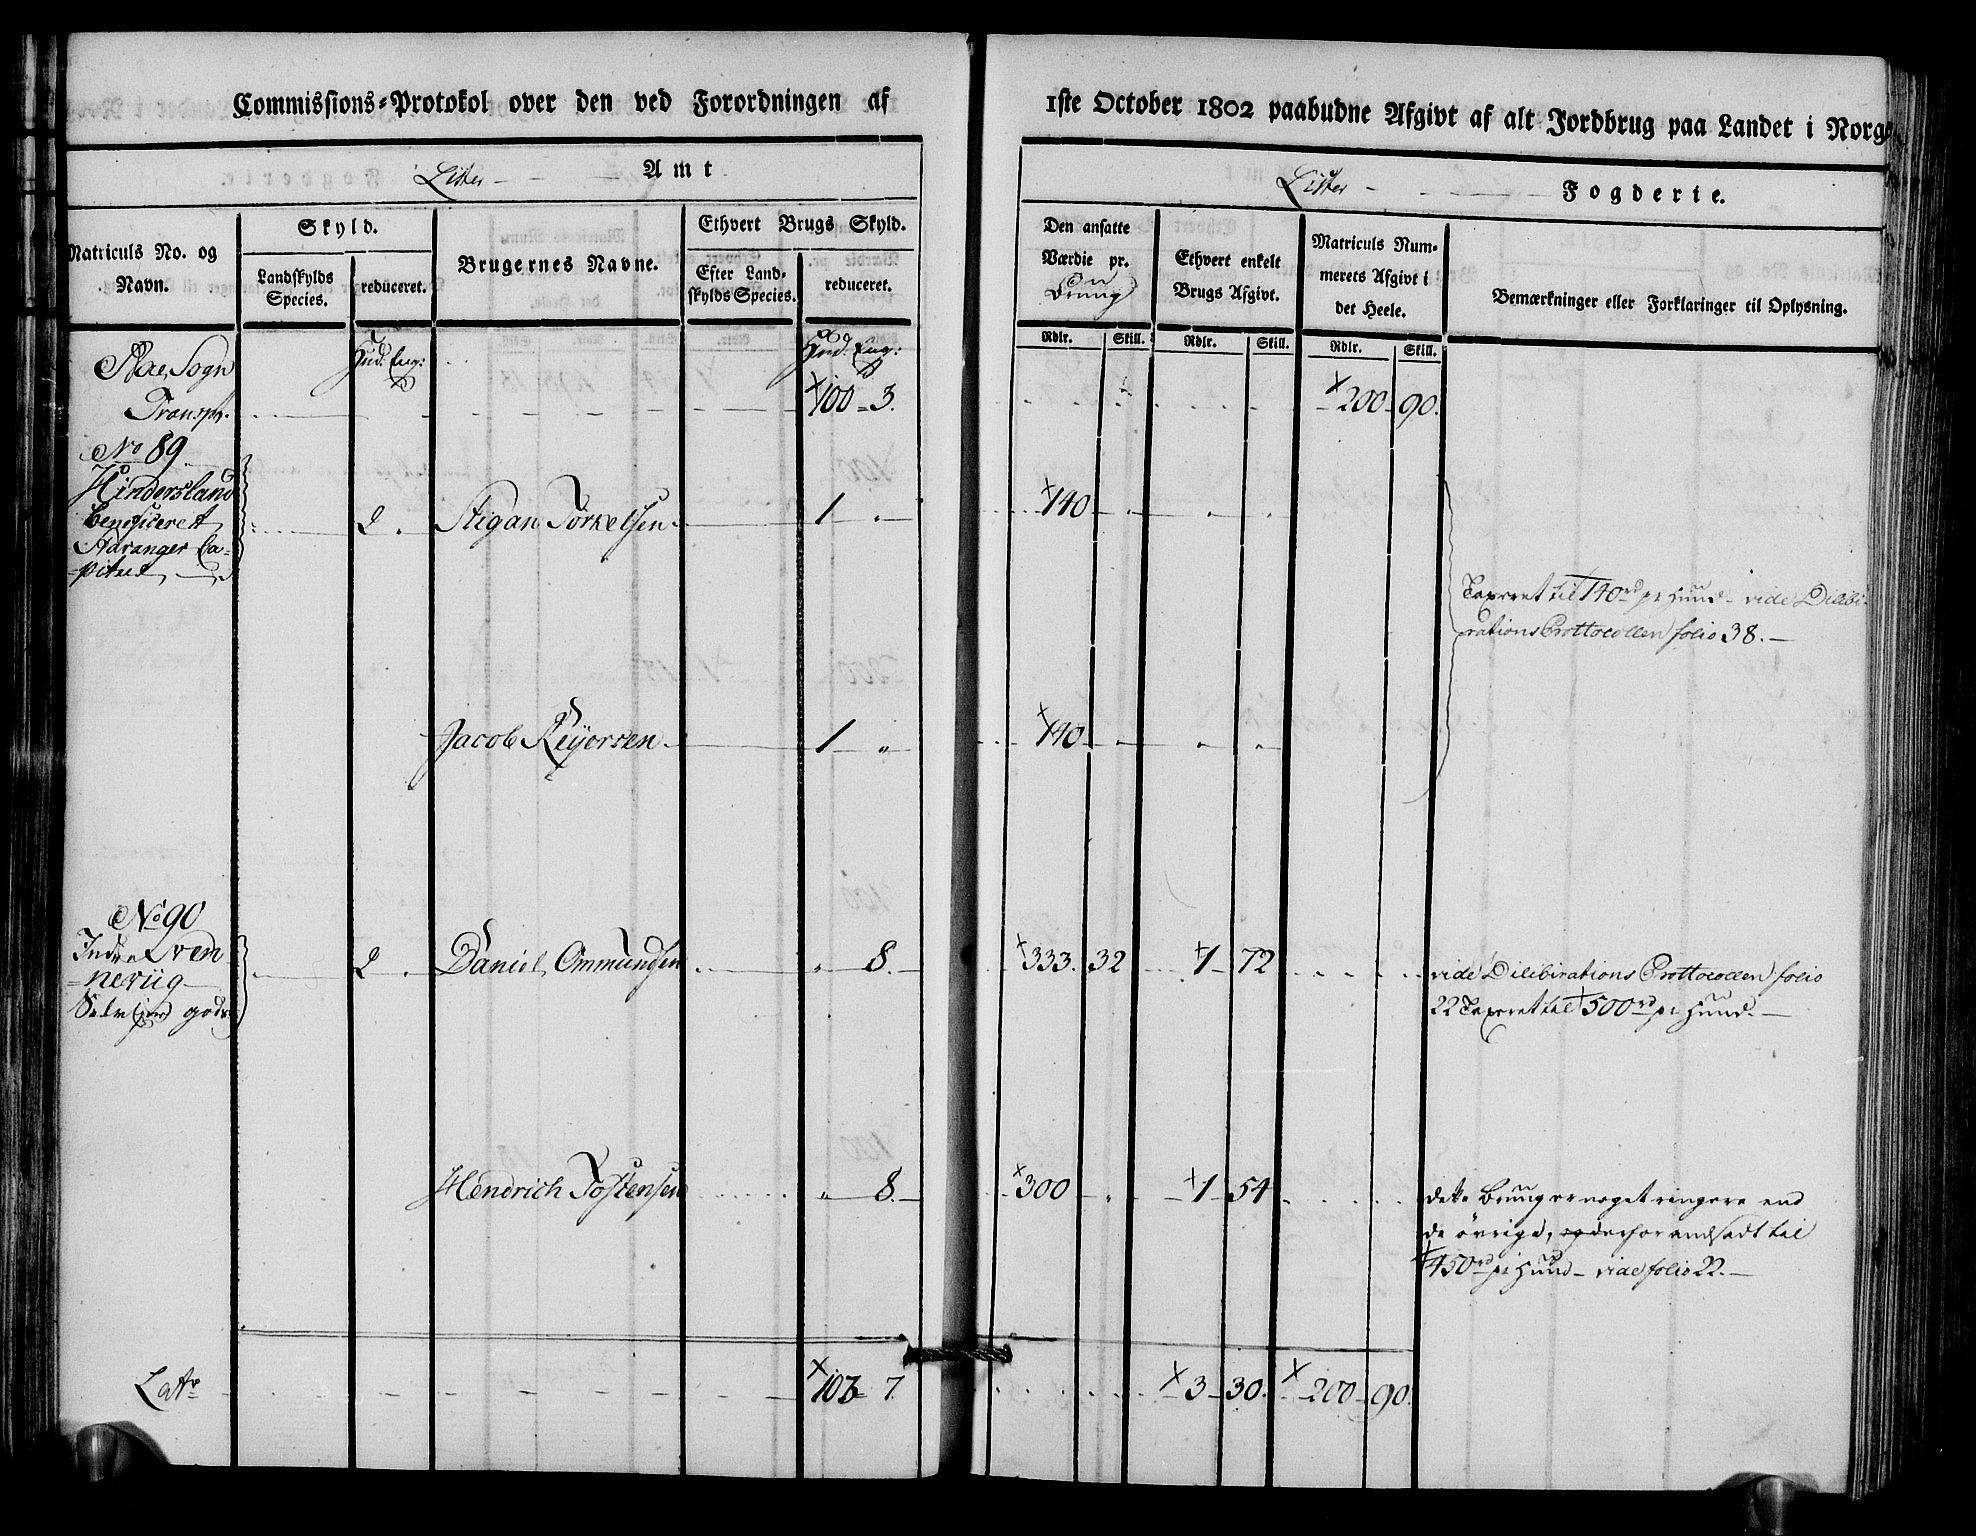 Commissions-Protokol over den ved Forordningen af 1ste October 1802 paabudne Afgivt af alt Jordbrug paa Landet i Norge
Lister Amt
Lister Fogderie.
Matriculs No. og Navn.
Skyld.
Landskylds Species.
reduceret.
Brugernes Navne.
Ethvert Brugs Skyld.
Efter Landskylds Species.
reduceret.
Den ansatte Værdie pr.
Bruug
Ethvert enkelt Brugs Afgivt.
Matriculs Nummerets Afgivt i det Heele.
Bemærkninger eller Forklaringer til Oplysning.
Rdlr. Skill. Rdlr. Skill. Rdlr. Skill.
Hud: Eng: Hud: Eng:
Aae Sogn
Transp. 100 = 3. 200 - 90.
No 89
Hindersland
beneficeret
Stavanger Ca-
pitul
2. Stigan Torkelsen 1 " 140
Taxeret til 140rd pr Huud - vide Dilibi-
rations Prottocollen folio 38. -
Jacob Reyersen 1 " 140
No 90
Indre Qven
neviig
Selv Ejer gods
2. Daniel Ommundsen " 8. 333. 32 1 - 72
vide Dilibirations Prottocollen folio
22 Taxeret til 500rd pr Huud. -
Hendrich Tostensen " 8. 300 " 1 - 54
dette Bruug er noget ringere end
de övrige, og derfor andsadt til
450rd pr Huud - vide folio 22. -
Latr 103 = 7. 3 - 30. 200 - 90.